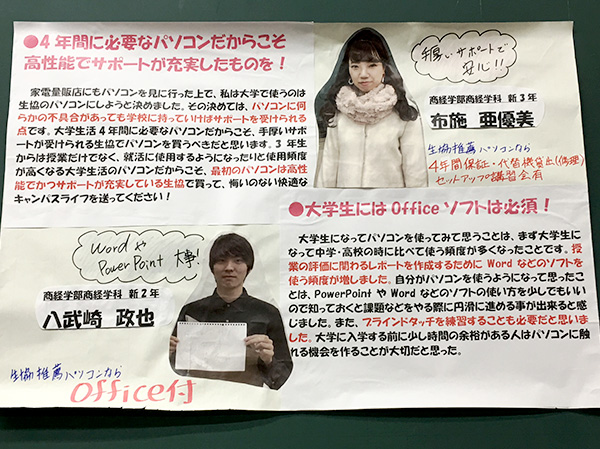 ●4年間に必要なパソコンだからこそ
高性能でサポートが充実したものを!
家電量販店にもパソコンを見に行った上で、私は大学で使うのは
生協のパソコンにしようと決めました。その決めては、パソコンに何
らかの不具合があっても学校に持っていけばサポートを受けられる
点です。大学生活4年間に必要なパソコンだからこそ、手厚いサポ
ートが受けられる生協でパソコンを買うべきだと思います。3年生
からは授業だけでなく、就活に使用するようになったりと使用頻度
が高くなる大学生活のパソコンだからこそ、最初のパソコンは高性
能でかつサポートが充実している生協で買って、悔いのない快適な
キャンパスライフを送ってください!
手厚いサポートで
安心!!
商経学部商経学科 新3年
布施 亜優美
生協推薦パソコンなら
4年間保証・代替機貸出(修理)
セットアップ講習会有
●大学生にはOfficeソフトは必須!
大学生になってパソコンを使ってみて思うことは、まず大学生に
なって中学・高校の時に比べて使う頻度が多くなったことです。授
業の評価に関わるレポートを作成するためにWordなどのソフトを
使う頻度が増しました。自分がパソコンを使うようになって思ったこ
とは、PowerPointやWordなどのソフトの使い方を少しでもいい
ので知っておくと課題などをやる際に円滑に進める事が出来ると感
じました。また、ブラインドタッチを練習することも必要だと思いま
した。大学に入学する前に少し時間の余裕がある人はパソコンに触
れる機会を作ることが大切だと思った。
Wordや
PowerPoint 大事!
商経学部商経学科 新2年
八武崎 政也
生協推薦パソコンなら
Office付